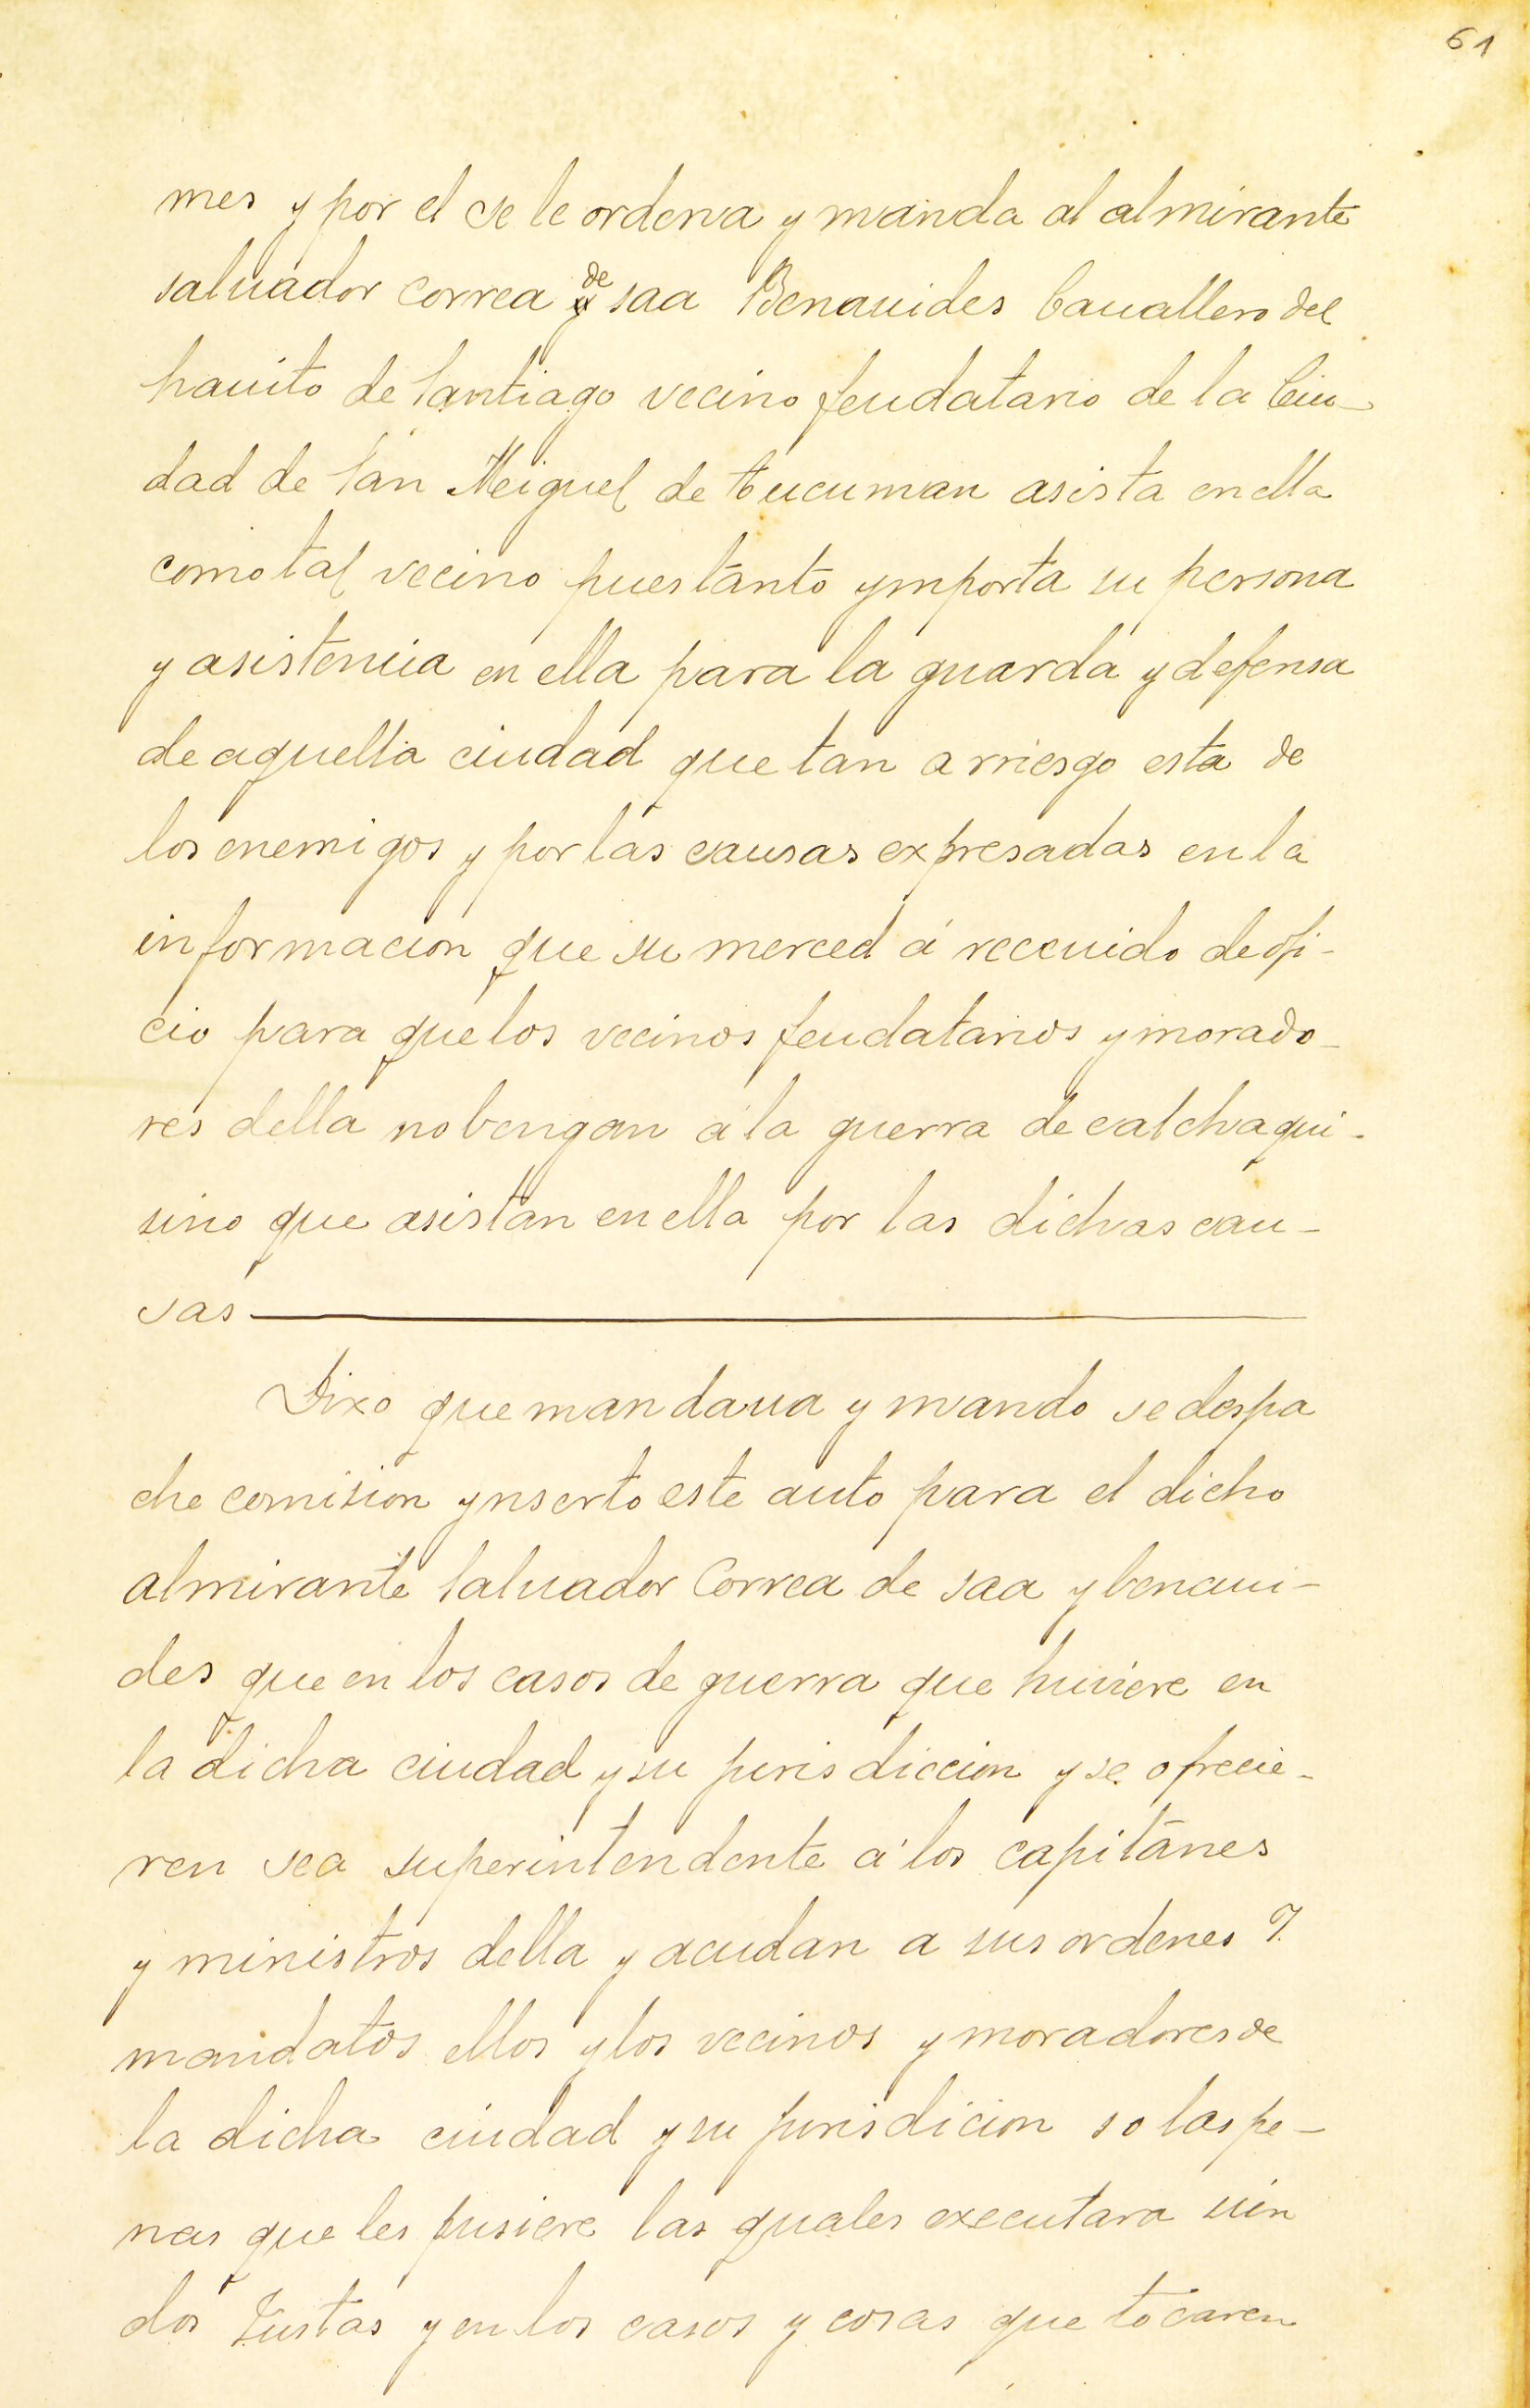 61
mes y por el se le ordena y manda al almirante
saluador correa de saa Benauides Cauallero del
hauito de Santiago vecino feudatario de la Ciu-
dad de San Meiguel de tucuman asista en ella
como tal vecino pues tanto ymporta su persona
y asistencia en ella para la guarda y defensa
de aquella ciudad que tan a rriesgo esta de
los enemigos y por las causas expresadas en la
informacion que su merced á receuido de ofi-
cio para que los vecinos feudatarios y morado-
res della no bengan á la guerra de calchaqui-
sino que asistan en ella por las dichas cau-
sas
Dixo que mandaua y mando se despa
che comision ynserto este auto para el dicho
almirante Saluador Correa de saa y benaui-
des que en los casos de guerra que huuiere en
la dicha ciudad y su jurisdiccion y se ofrecie-
ren sea superintendente á los capitanes
y ministros della y acudan a sus ordenes y
mandatos ellos y los vecinos y moradores de
la dicha ciudad y su jurisdicion so las pe-
nas que les pusiere las quales executara sien
dos Justas y en los casos y cosas que tocaren